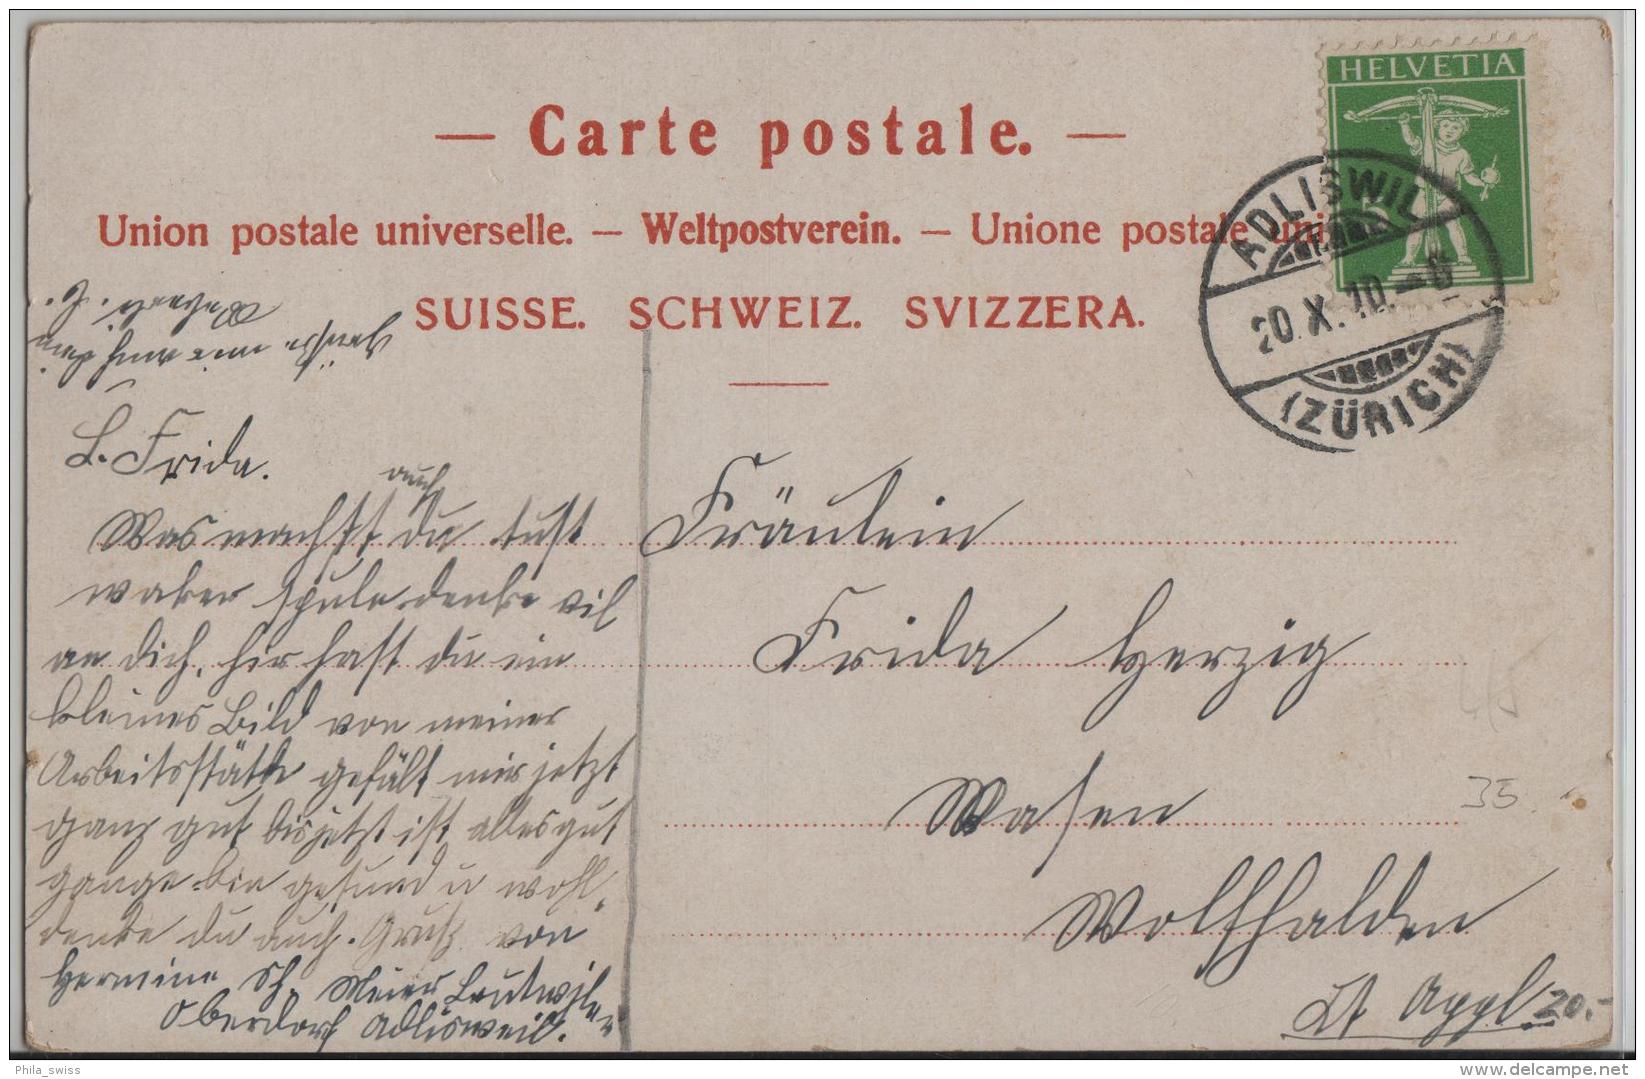 HELVETIA
— Carte postale. —
Union postale universelle. — Weltpostverein. — Unione postale uni
SUISSE. SCHWEIZ. SVIZZERA.
ADLISWIL
20.X.10.–6
(ZÜRICH)
L. Frida.
auch
Was machst du tust
waker spule denke vil
an dich, hir hast du ein
kleines Bild von meiner
Arbeitsstätte gefält mir jetzt
ganz gut bis jetzt ist alles gut
gange bin gesund u wohl,
denke du auch. Gruß von
Hermine Sch. Meier Leutwiler
Oberdorf Adlisweil.
Fräulein
Frida Herzig
Wasen
Wolfhalden
Kt Appl
20.-
35
Phila_swiss
delcampe.net